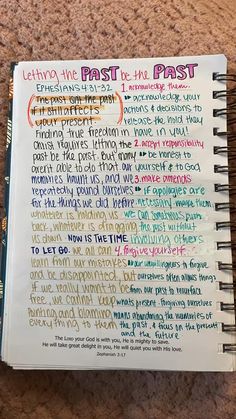 Letting the PAST be the PAST
EPHESIANS 4:31-32
The past isn't the past
if it still affects
your present.
Finding true freedom in
Christ requires letting the
past be the past. But many
aren't able to do that. Our
memories haunt us, and we
repeatedly pound ourselves
for the things we did before
whatever is holding us
back, whatever is dragging
us down. NOW IS THE TIME
TO LET GO. We can
learn from our mistakes
and be disappointed, but
if we really want to be
free, we cannot keep
hunting and blaming
everything to them
1. acknowledge them.
acknowledge your
actions & decisions to
release the hold they
have in you!
2. accept responsibility
be honest to
yourself & to God
3. make amends
if apologies are
necessary, make them
we can sometimes put
the past without
involving others
4. forgive yourself
our unwillingness to forgive
ourselves often allows things
from our past to resurface
present. Forgiving ourselves
means abandoning the memories of
the past, & focus on the present
and the future
The LORD your God is with you, He is mighty to save.
He will take great delight in you, He will quiet you with His love.
Zephaniah 3:17